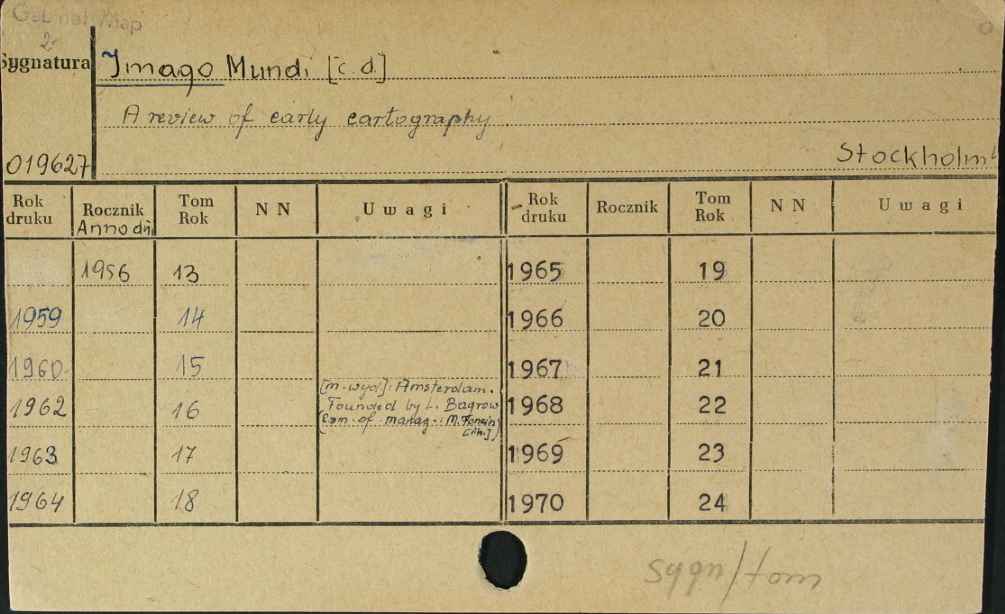 Gabinet Map
2
Sygnatura Imago Mundi [c.d.]
A review of early cartography
019627 Stockholm
Rok druku Rocznik Tom Rok N N Uwagi Rok druku Rocznik Tom Rok N N Uwagi
Anno di
1956 13 1965 19
1959 14 1966 20
1960 15 1967 21
[m. wyd]: Amsterdam.
1962 16 Founded by L. Bagrow 1968 22
of manag.: M.
1963 17 1969 23
1964 18 1970 24
sygn/tom